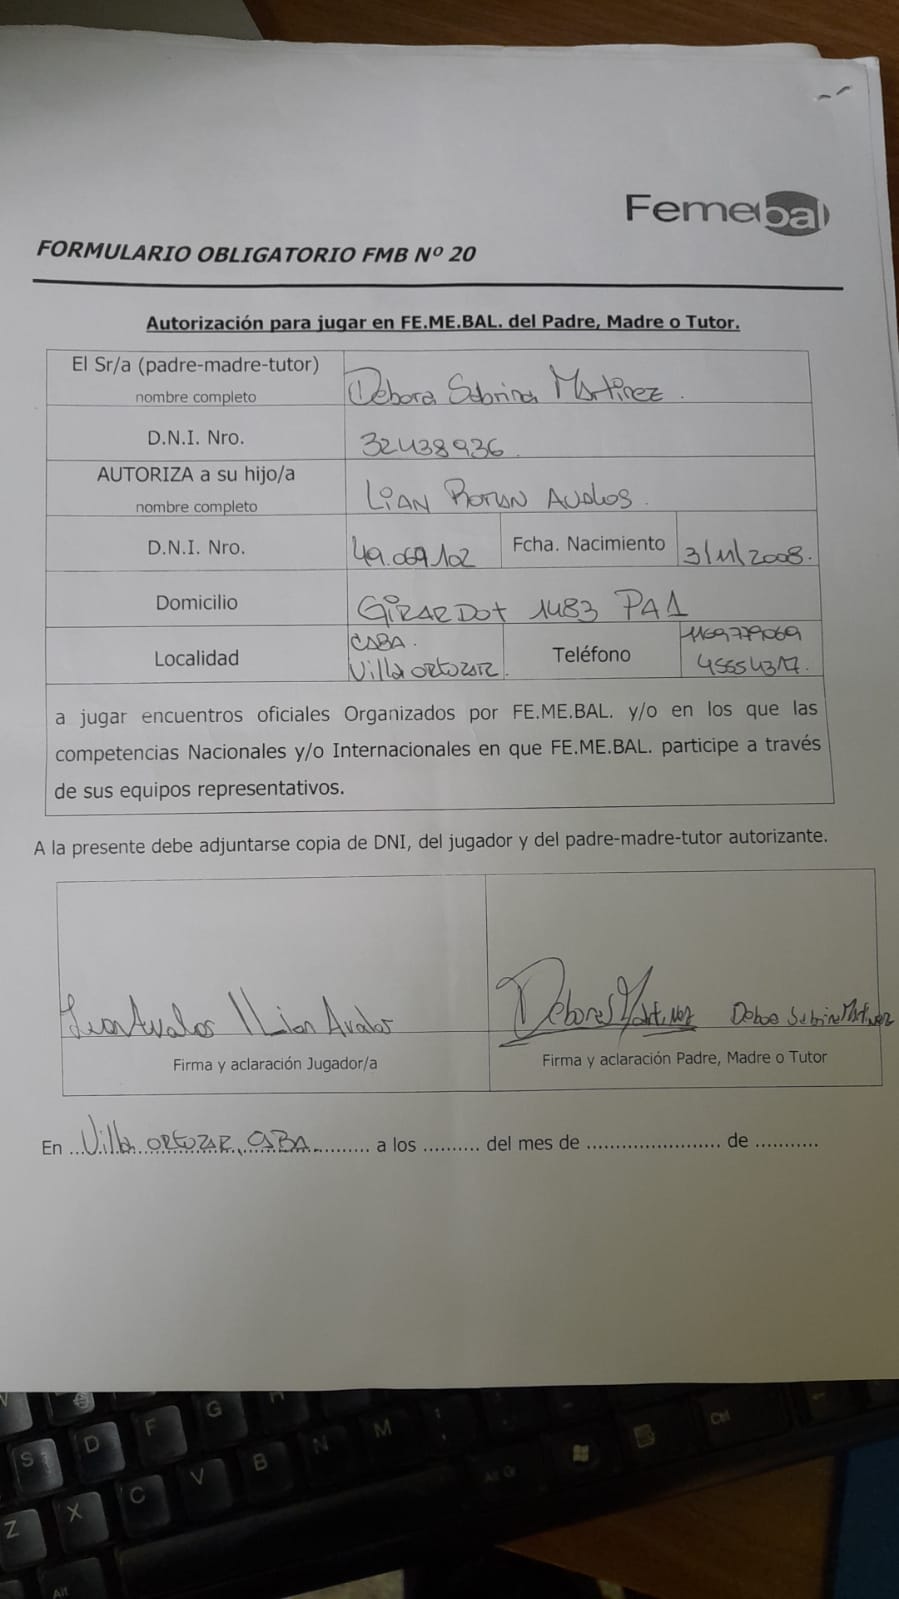 Femebal
FORMULARIO OBLIGATORIO FMB Nº 20
Autorización para jugar en FE.ME.BAL. del Padre, Madre o Tutor.
El Sr/a (padre-madre-tutor)
nombre completo
Debora Sabrina Martinez.
D.N.I. Nro.
32438936.
AUTORIZA a su hijo/a
nombre completo
LIAN AVALOS.
D.N.I. Nro.
49.069.102
Fcha. Nacimiento
3/11/2008.
Domicilio
GIRARDOT 1483 PA1
Localidad
CABA.
Villa ORTUZAR.
Teléfono
1169779069
45554317.
a jugar encuentros oficiales Organizados por FE.ME.BAL. y/o en los que las
competencias Nacionales y/o Internacionales en que FE.ME.BAL. participe a través
de sus equipos representativos.
A la presente debe adjuntarse copia de DNI, del jugador y del padre-madre-tutor autorizante.
Lian Avalos Lian Avalos
Firma y aclaración Jugador/a
Debora Martinez Debora Sabrina Martinez
Firma y aclaración Padre, Madre o Tutor
En ...Villa ORTUZAR, CABA........... a los .......... del mes de ....................... de ...........
G
S D F
V B N M
Z X C
Alt Gr
Ctrl
Alt